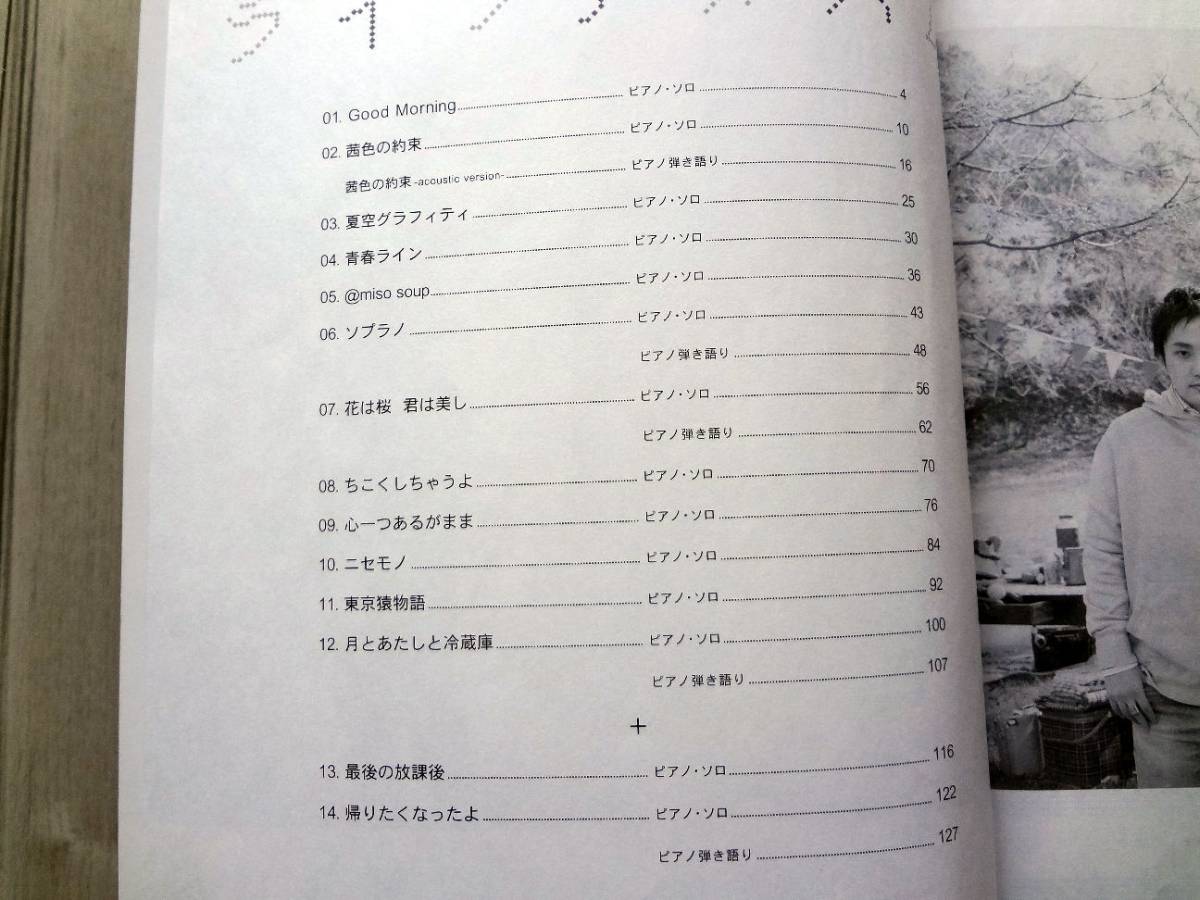 01. Good Morning ピアノ・ソロ 4
02. 茜色の約束 ピアノ・ソロ 10
茜色の約束 -acoustic version- ピアノ弾き語り 16
03. 夏空グラフィティ ピアノ・ソロ 25
04. 青春ライン ピアノ・ソロ 30
05. @miso soup ピアノ・ソロ 36
06. ソプラノ ピアノ・ソロ 43
ピアノ弾き語り 48
07. 花は桜 君は美し ピアノ・ソロ 56
ピアノ弾き語り 62
08. ちこくしちゃうよ ピアノ・ソロ 70
09. 心一つあるがまま ピアノ・ソロ 76
10. ニセモノ ピアノ・ソロ 84
11. 東京猿物語 ピアノ・ソロ 92
12. 月とあたしと冷蔵庫 ピアノ・ソロ 100
ピアノ弾き語り 107
+
13. 最後の放課後 ピアノ・ソロ 116
14. 帰りたくなったよ ピアノ・ソロ 122
ピアノ弾き語り 127